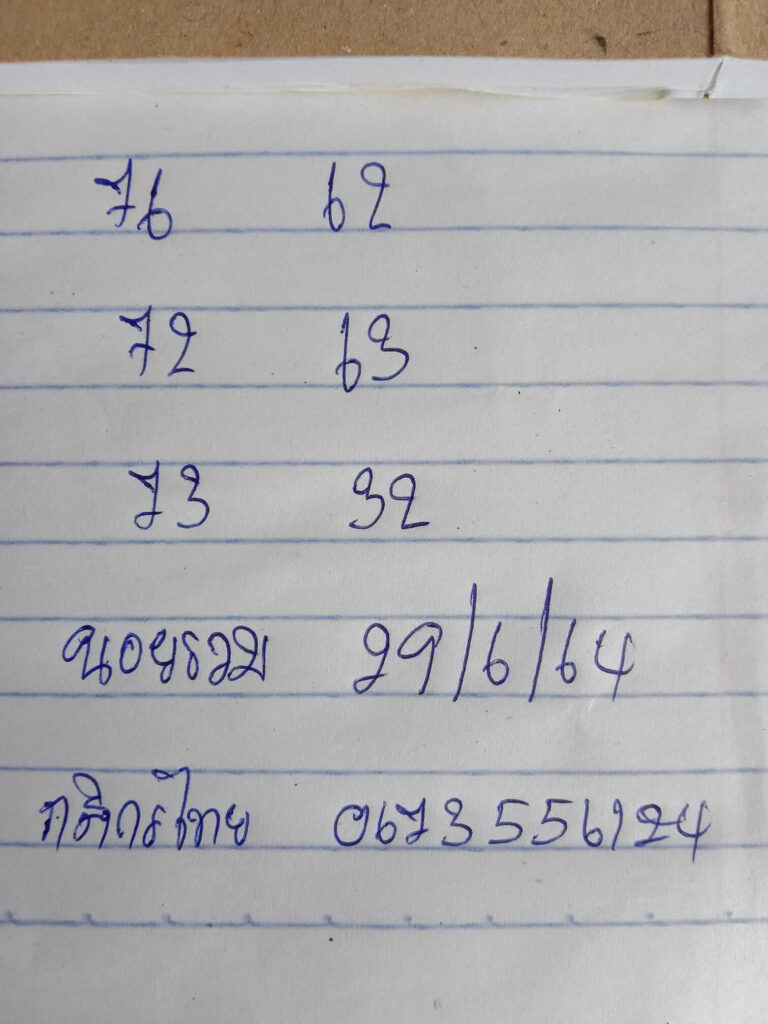 76 62
72 63
73 32
ฉนอยรวม 29/6/64
กสิกรไทย 0673556124